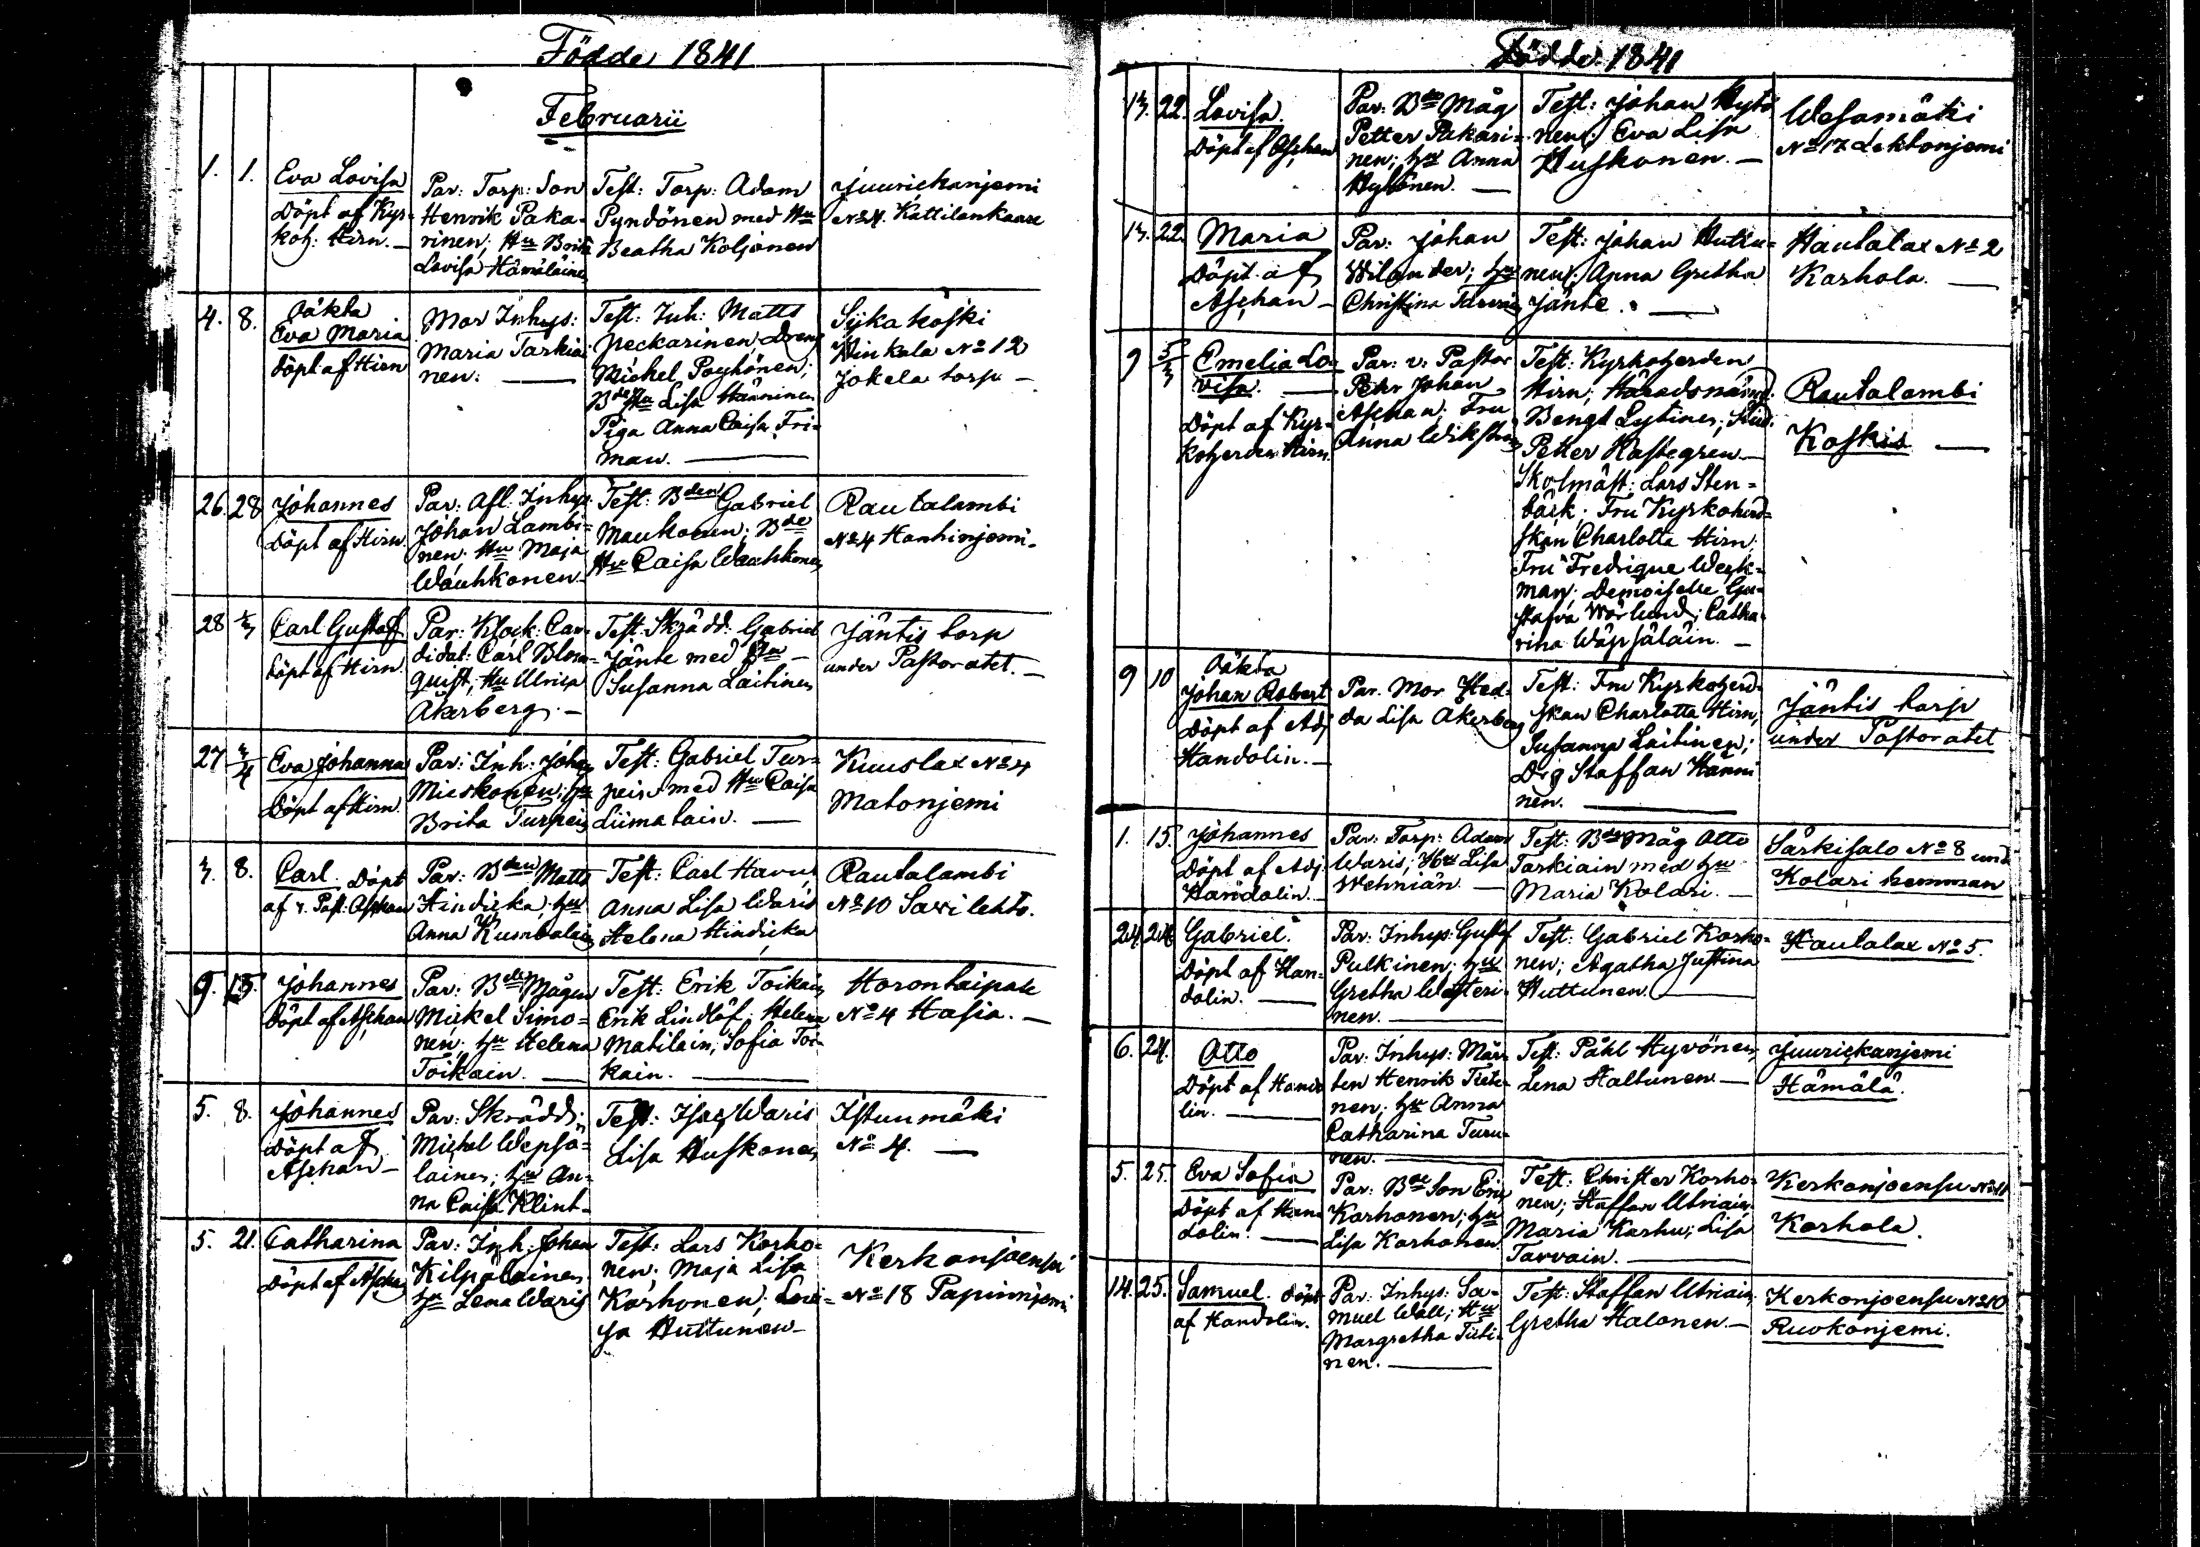 Födde 1841
Februarii
1. 1. Eva Lovisa
Döpt af Kyr-
koh: Hirn.
Par: Torp: Son
Henrik Paka-
rinen; Hu Brita
Lovisa Hämäläinen
Test: Torp: Adam
Pyndönen med Hu
Beatha Koljonen
Juurickanjemi
No 24. Kattilankaare
4. 8. Oäkta
Eva Maria
Döpt af Hirn
Mor Inhys:
Maria Tarkiai
nen.
Test: Inh: Matts
Peckarinen, Dreng
Michel Poyhönen;
Bde Hu Lisa Hänninen
Piga Anna Caisa Fri-
man.
Sijkakoski
Kinkala No 12
Jokela torp
26. 28 Johannes
Döpt af Hirn.
Par: Afl. Inhys
Johan Lambi-
nen; Hu Maja
Wauhkonen
Test: Bden Gabriel
Maukonen; Bde
Hu Caisa Wauhkonen
Rautalambi
No 4 Hanhinjemi.
28 Carl Gustaf
Döpt af Hirn.
Par: Klock: Can-
didat: Carl Blom-
quist; Hu Ulrica
Åkerberg.
Test: Skrädd: Gabriel
Jänte med
Susanna Laitinen
Jäntis torp
under Pastoratet.
27 Eva Johanna
Döpt af Hirn.
Par: Inh: Johan
Mieskonen; hu
Brita Turpein
Test: Gabriel Tur-
pein med Hu Caisa
Liimatain.
Kuuslax No 4
Matonjemi
8. Carl. Döpt
af v. Past: Aschan
Par: Bden Matts
Hindicka; hu
Anna Kumbulain
Test: Carl Havu,
Anna Lisa Waris
Helena Hindicka
Rautalambi
No 10 Sarilehto.
9. 13. Johannes
Döpt af Aschan
Par: Bde Mågen
Mickel Simo-
nen; hu Helena
Toikain.
Test: Erik Toikain
Erik Lindlöf; Helena
Matilain; Sofia Toi-
kain.
Horontaipale
No 4 Hasia.
5. 8. Johannes
Döpt af
Aschan
Par: Skrädd:
Michel Wepsä-
lainen; hu An-
na Caisa Klint
Test: Isac Waris
Lisa Huskonen
Istunmäki
No 4.
5. 21. Catharina
Döpt af Aschan
Par: Inh: Johan
Kilpäläinen
hu Lena Waris
Test: Lars Korho-
nen; Maja Lisa
Korhonen; Lovi-
sa Huttunen
Kerkonjoensu
No 18 Papinnjemi
Födde 1841
22. Lovisa.
Döpt af Aschan
Par: Bde Måg
Petter Pakari-
nen; hu Anna
Hytönen.
Test: Johan Hytö
nen; Eva Lisa
Huskonen.
Wesamäki
No 17 Lehtonjemi
22. Maria
Döpt af
Aschan
Par: Johan
Wilander; hu
Christina
Test: Johan Huttu-
nen; Anna Gretha
Jänte.
Hautalax No 2
Korhola.
9 Emelia Lo-
visa.
Döpt af Kyr-
koherden Hirn
Par: v: Pastor
Petr Johan
Aschan; Fru
Anna Wikström
Test: Kyrkoherden
Hirn; Häradsnämd.
Bengt Lytinen;
Petter Hastegren
Skolmäst: Lars Sten-
bäck; Fru Kyrkoherd-
skan Charlotta Hirn,
Fru Fredrique Weck-
man; Demoiselle Gu-
stafva Wörlund; Catha-
rina Wäpsäläin.
Rautalambi
Koskis
9 10 Oäkta
Johan Robert
Döpt af Adj
Handolin.
Par. Mor Hed-
da Lisa Åkerberg
Test: Fru Kyrkoherd-
skan Charlotta Hirn,
Susanna Laitinen;
Drg Staffan Hänni
nen.
Jäntis torp
under Pastoratet
1. 15. Johannes
Döpt af Adj.
Handolin.
Par: Torp: Adam
Waris; Hu Lisa
Wehniän
Test: Bde Måg Otto
Tarkiain med hu
Maria Kolari.
Särkisalo No 8 und
Kolari hemman
24. 24 Gabriel.
Döpt af Han-
dolin.
Par: Inhys: Gustaf
Pulkinen; hu
Gretha Westeri-
nen.
Test: Gabriel Korho-
nen; Agatha Justina
Huttunen.
Hautalax No 5.
6. 24. Otto
Döpt af Hando
lin.
Par: Inhys: Mår-
ten Henrik Tiiti-
nen; hu Anna
Catharina Turu-
nen.
Test: Påhl Hyvönen,
Lena Haltunen
Juurickanjemi
Hämälä.
5. 25. Eva Sofia
Döpt af Han-
dolin.
Par: Bde Son Eric
Korhonen; hu
Lisa Korhonen
Test: Christer Korho-
nen; Staffan Utriain
Maria Karhu; Lisa
Tarvain.
Kerkonjoensu No 11
Korhola.
14. 25. Samuel. Döpt
af Handolin.
Par: Inhys: Sa-
muel Wall; Hu
Margretha Tiiti-
nen.
Test: Staffan Utriain
Gretha Halonen.
Kerkonjoensu No 10
Ruokonjemi.